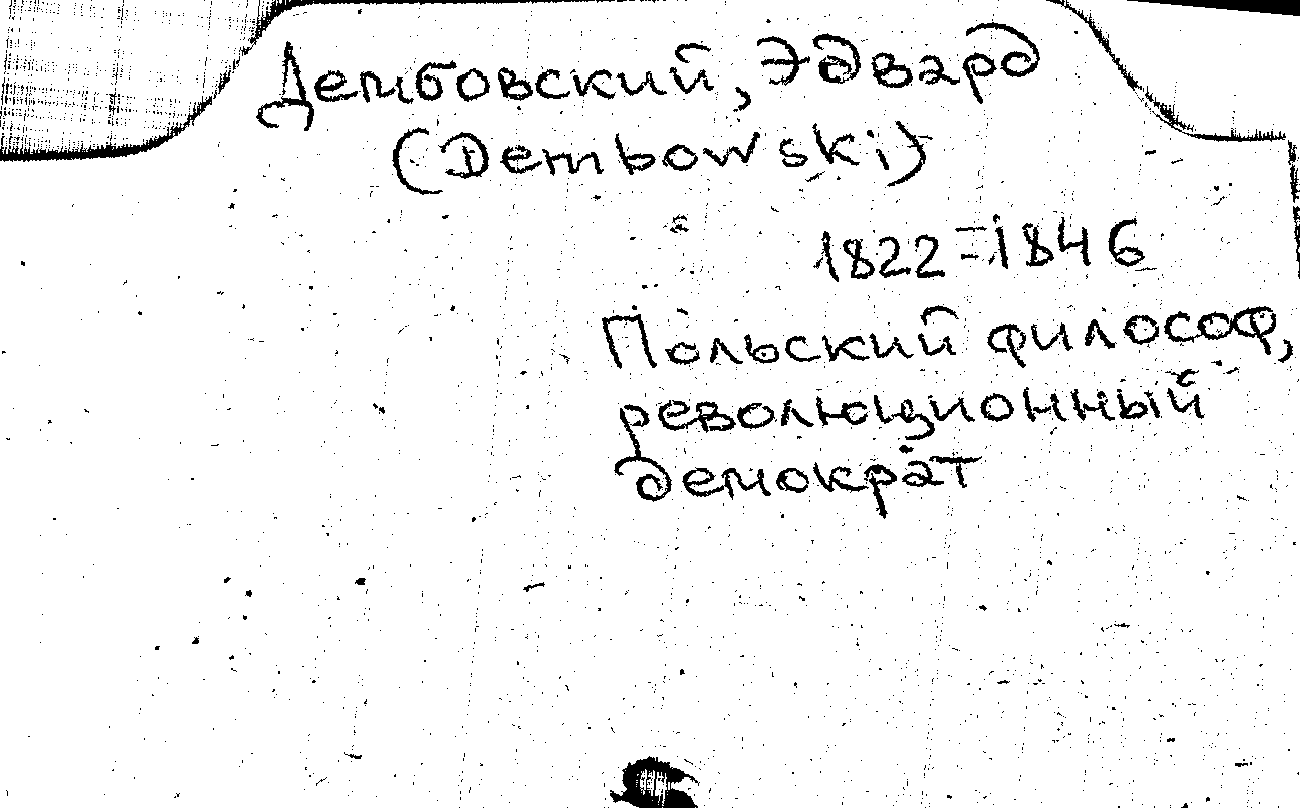 Дембовский, Эдвард
(Dembowski)
1822-1846
Польский философ,
революционный
демократ